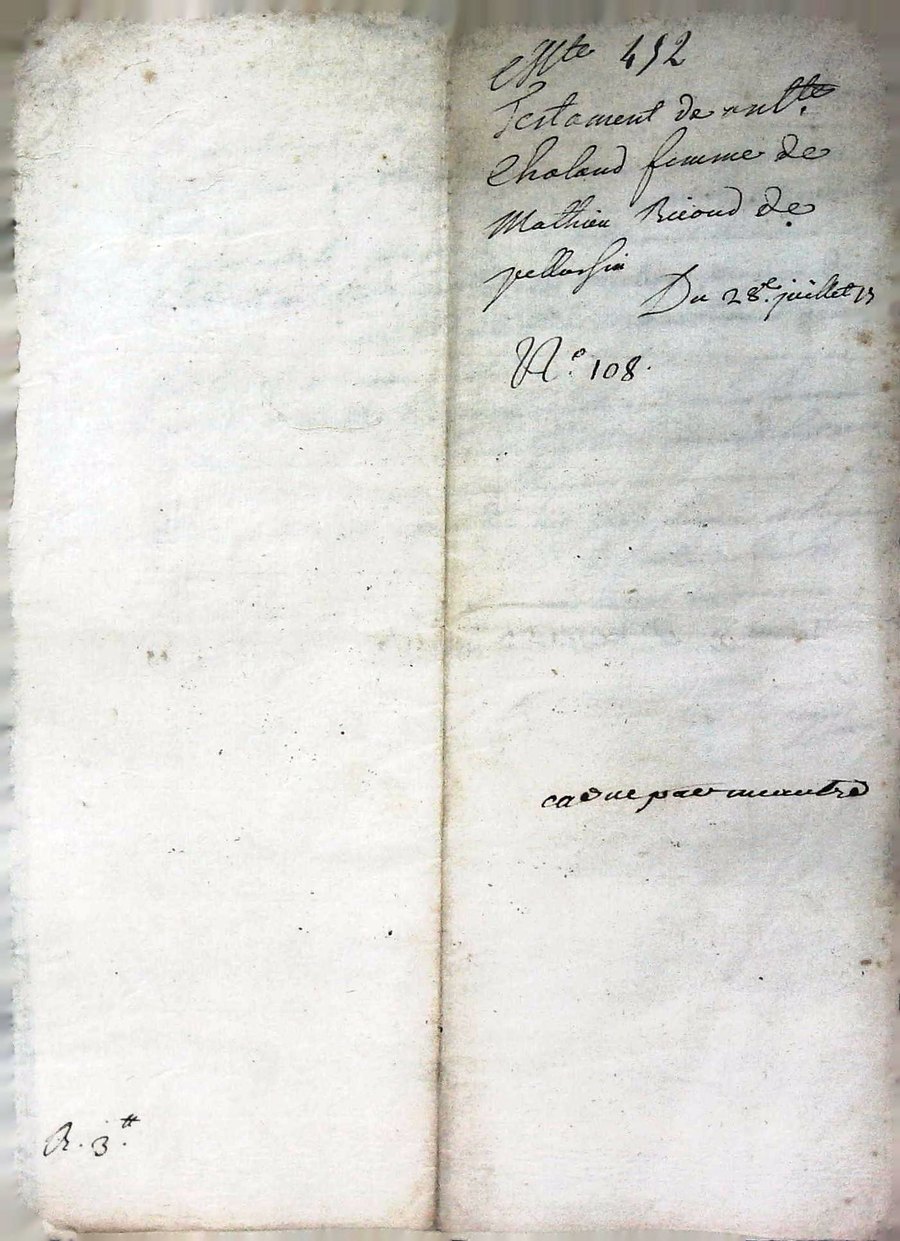 Cotte 452
Testament de antte
Choland femme de
Mathieu Ricoud de
pellussin
Du 28e. juillet 13
N.o 108.
caduc par
R. 3tt